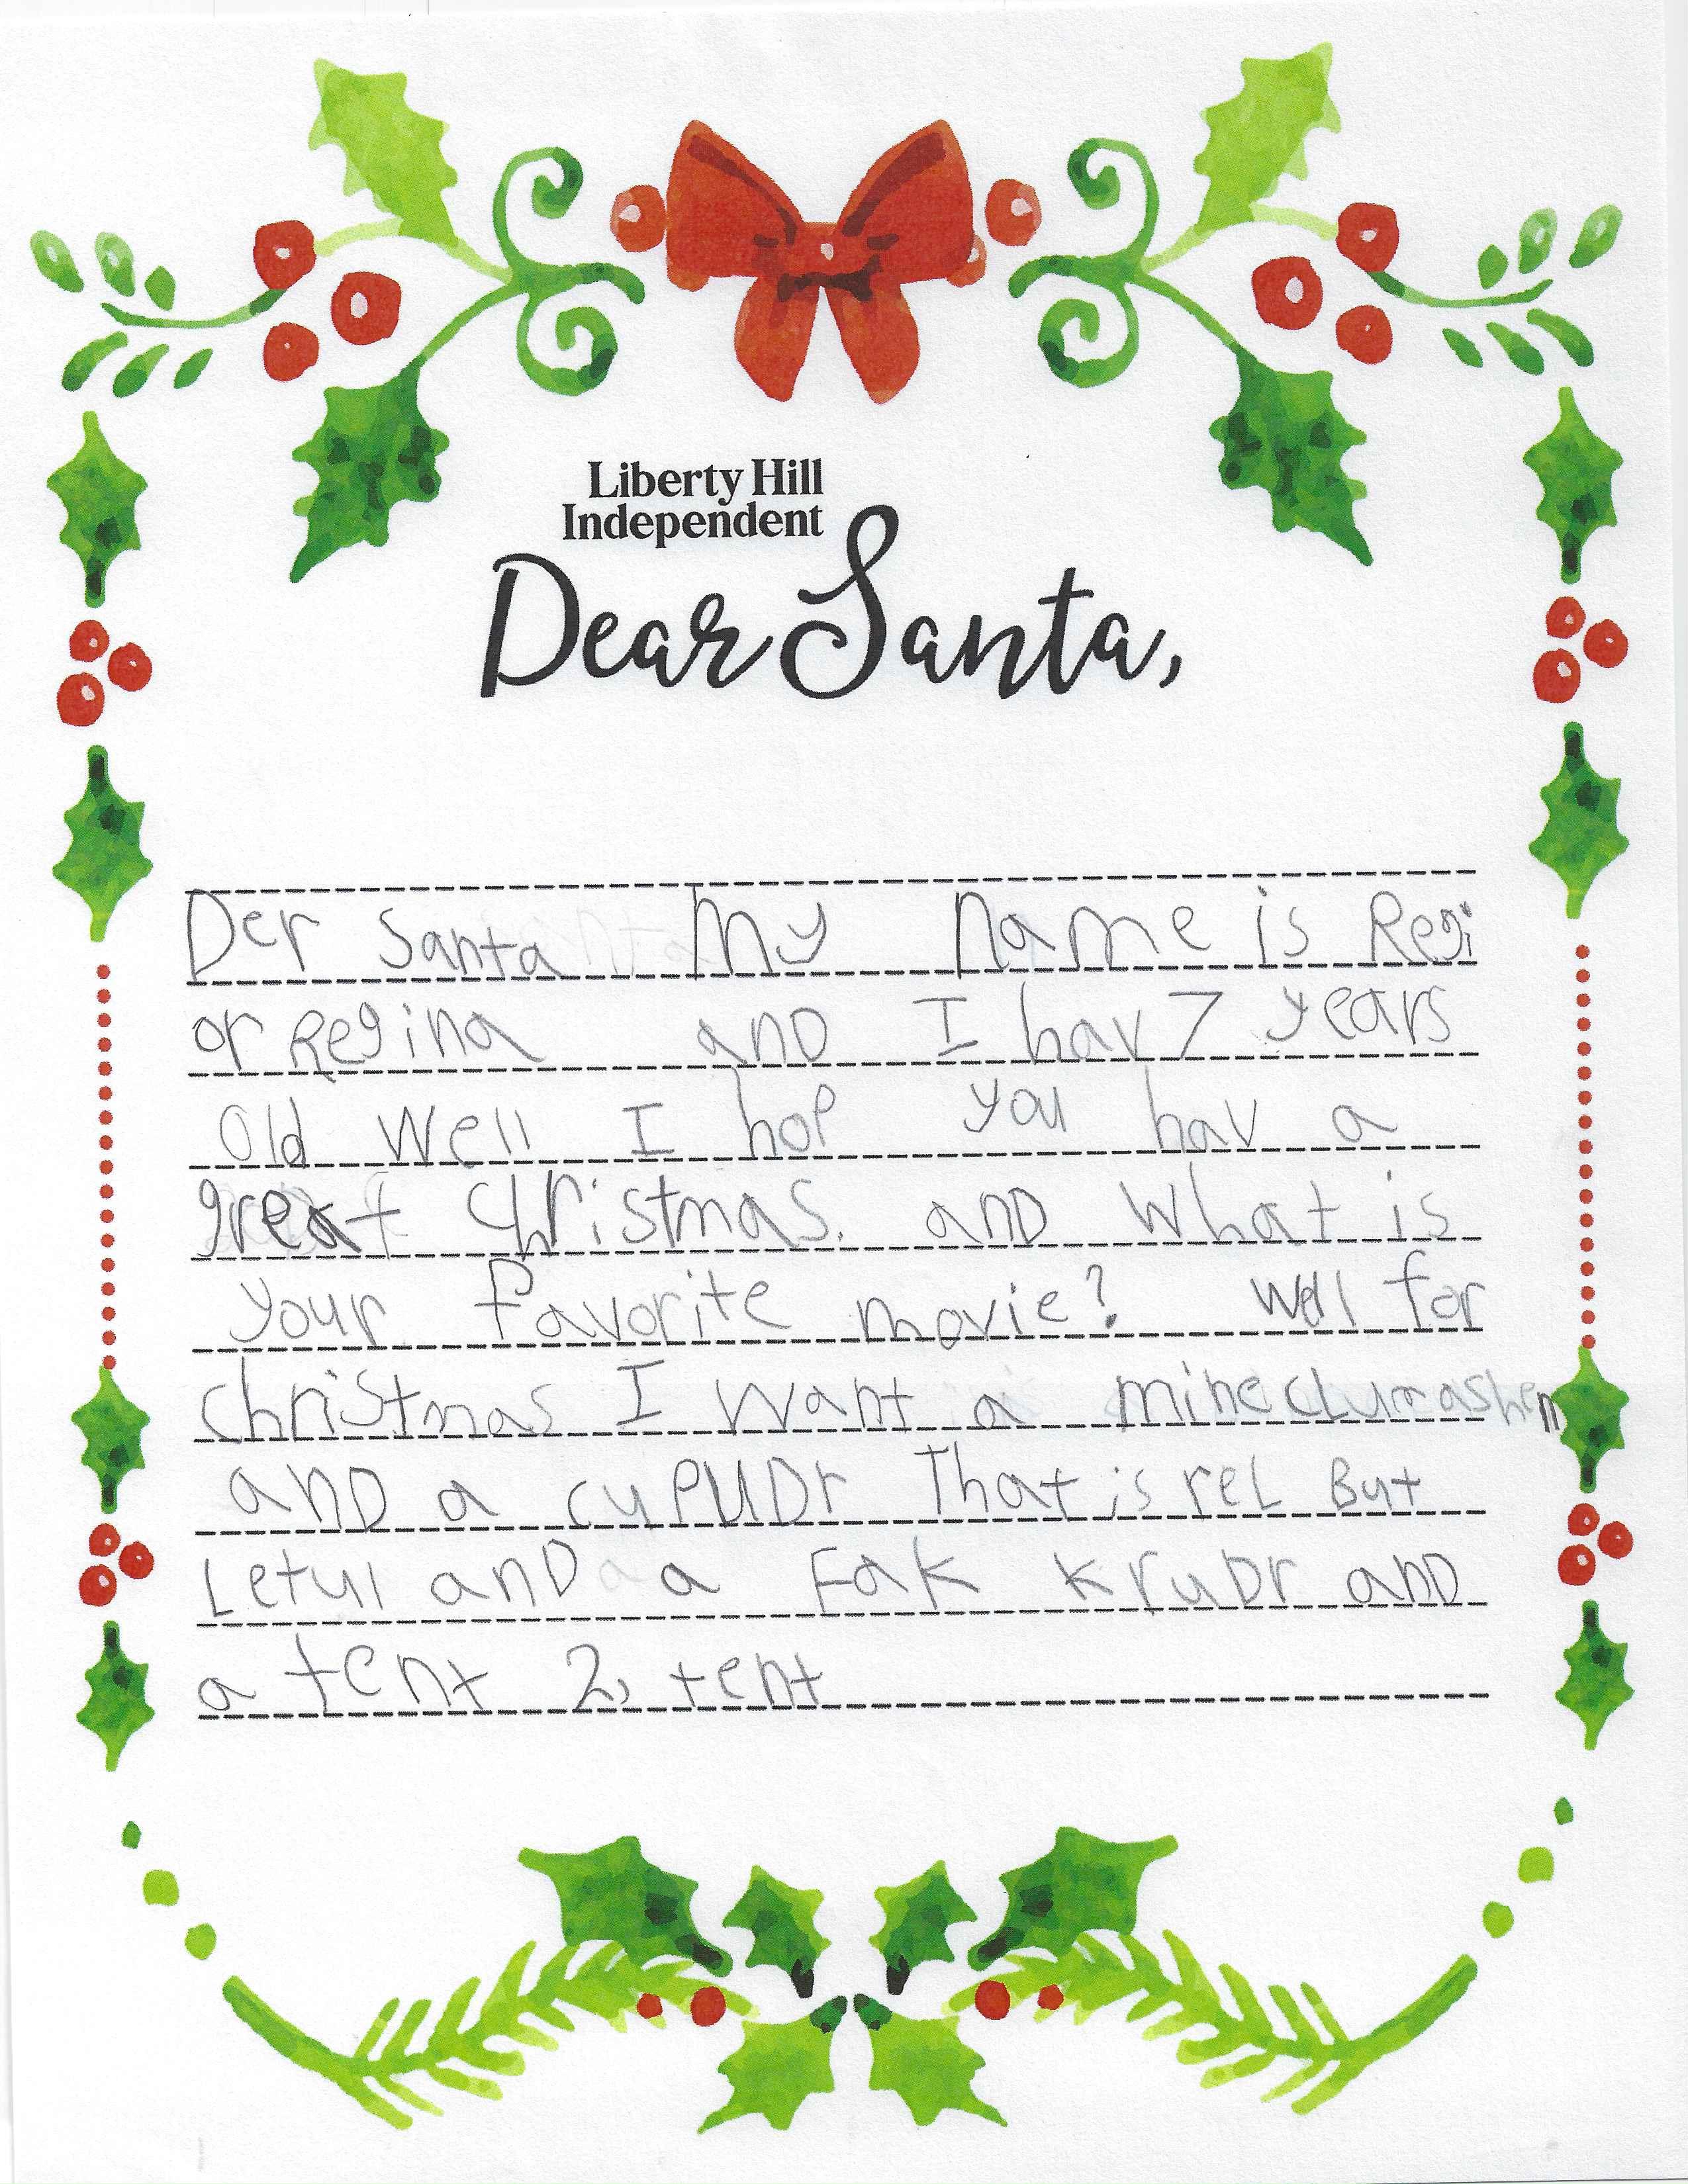 Liberty Hill
Independent
Dear Santa,
Der Santa My name is Regi
or Regina and I hav 7 years
old well I hop you hav a
great christmas. and what is
your favorite movie? Well for
christmas I want a
and a cuPUDr That is reL But
Letul and a Fak kruDr and
a tent 2, tent